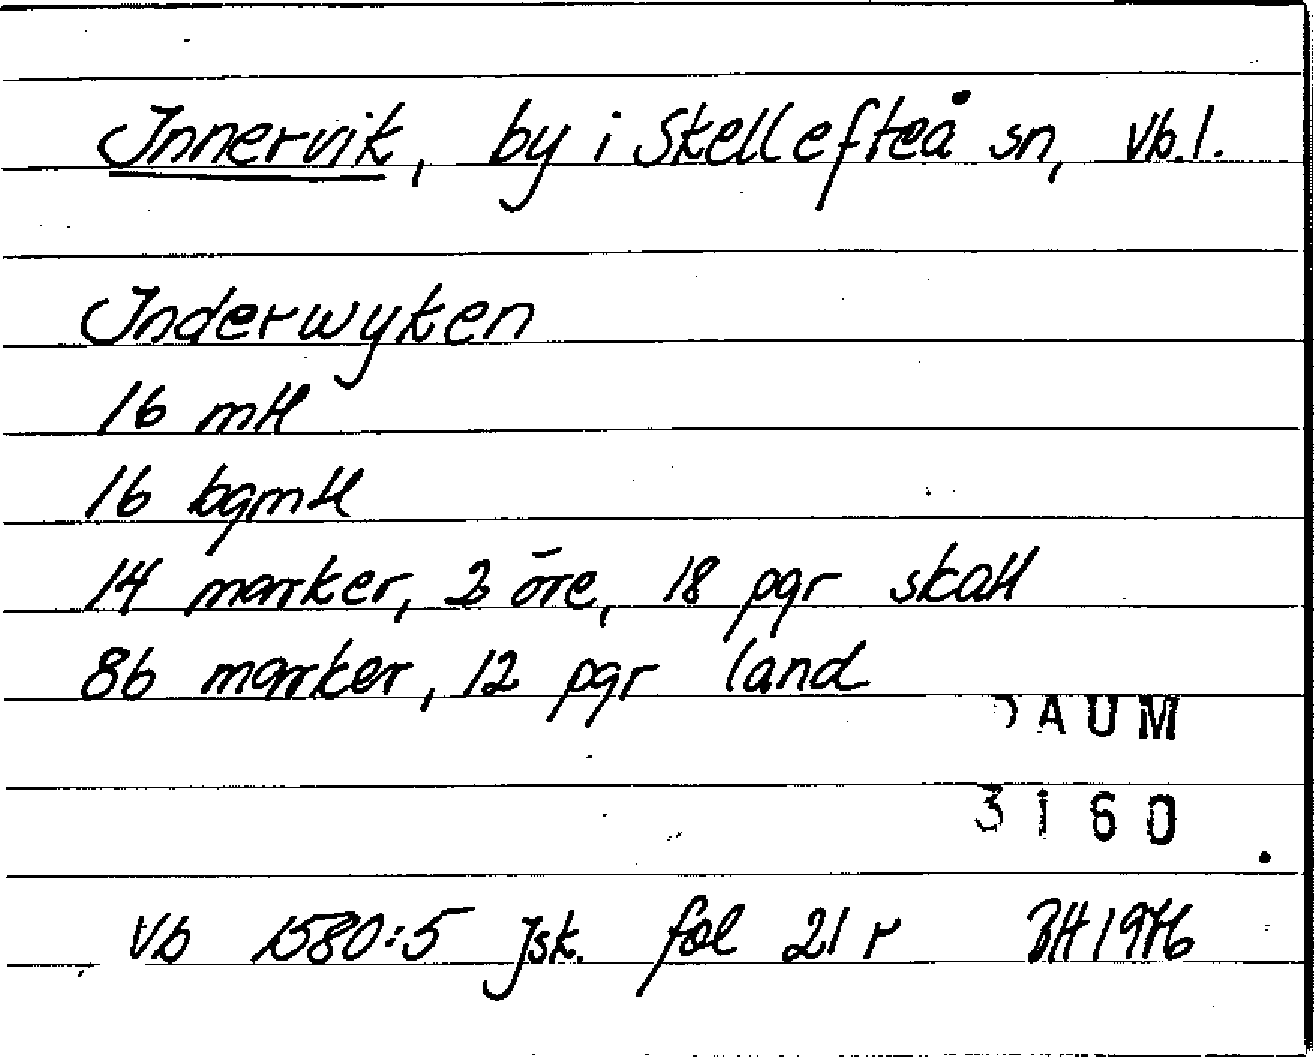 Innervik, by i Skellefteå sn, Vb.l.
Inderwyken
16 mtl
16 bgmtl
14 marker, 3 öre, 18 pgr skatt
86 marker, 12 pgr land
DAUM
3160
Vb 1580:5 Jsk. fol 21 r BH 1976